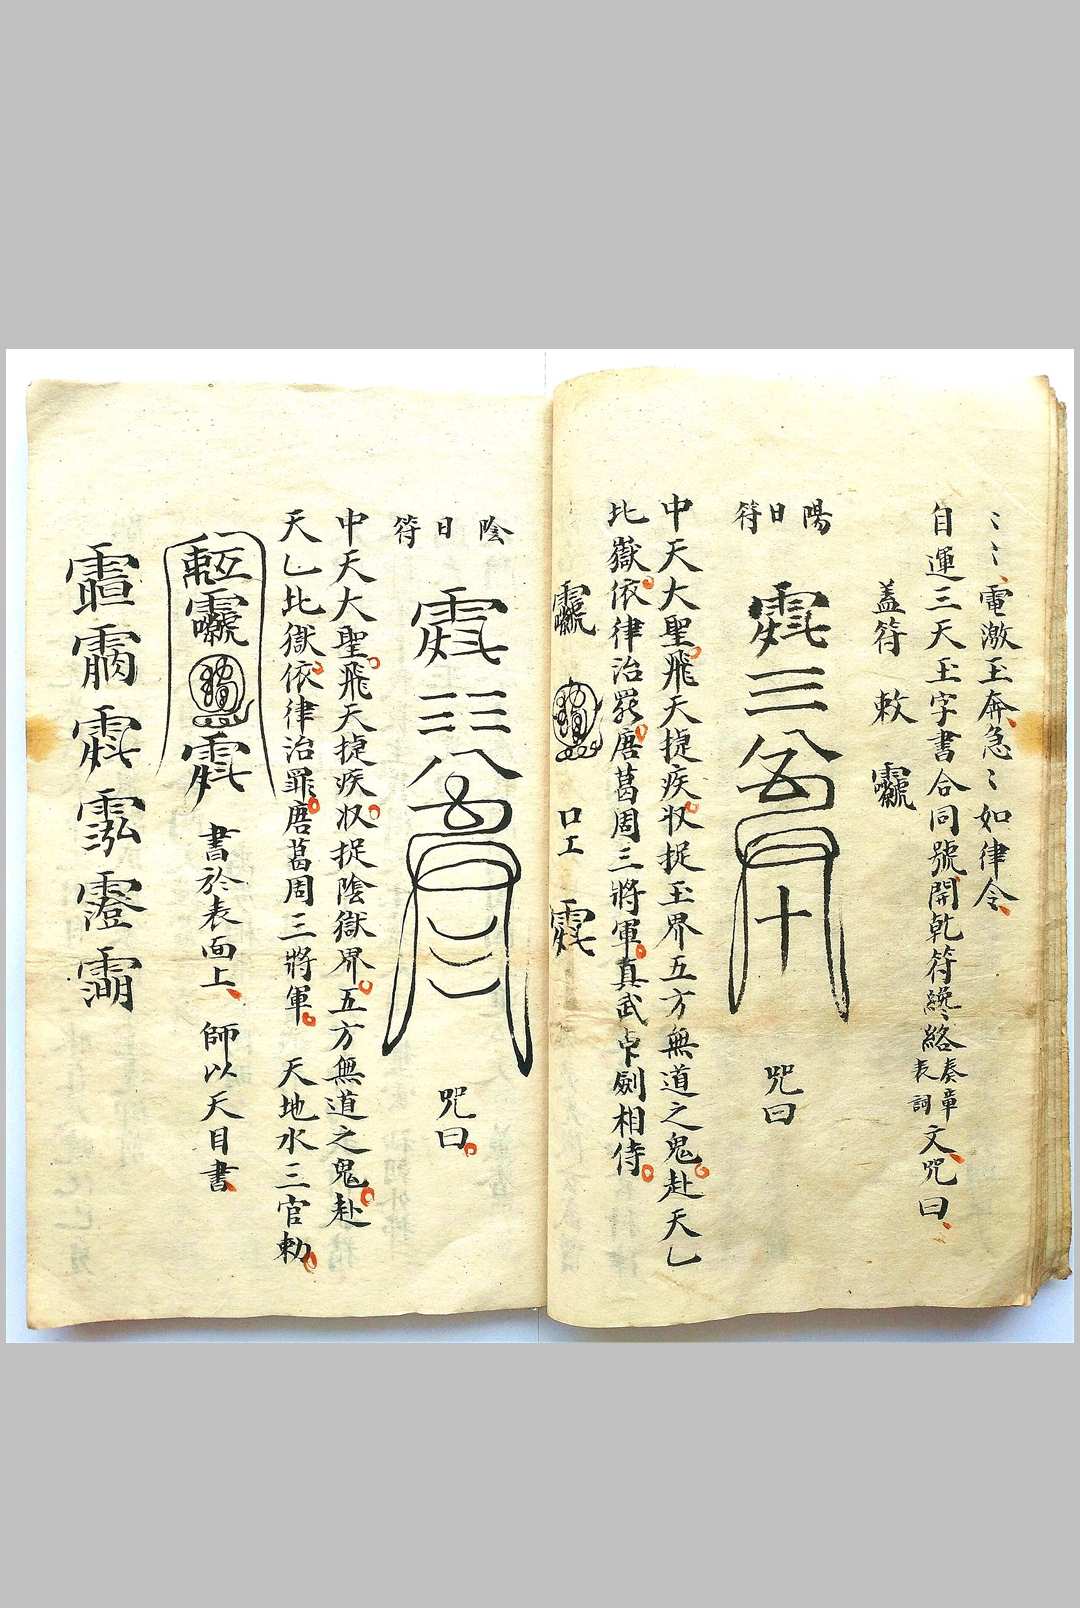 〻〻電激玉奔急〻如律令
自運三天玉字書合同號開乾符纔絡奏章表詞文咒曰
蓋符 敕
陽日符
三
十
咒曰
中天大聖飛天捷疾収捉玉界五方無道之鬼赴天乙
北嶽依律治罪唐葛周三將軍真武卓劍相侍
口工
陰日符
咒曰
中天大聖飛天捷疾収捉陰獄界五方無道之鬼赴
天乙北獄依律治罪唐葛周三將軍 天地水三官勅
書於表面上 師以天目書